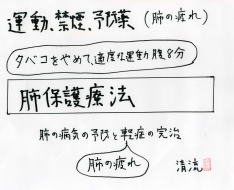 運動、禁煙、予防薬 (肺の疲れ)
タバコをやめて、適度な運動 腹8分
肺保護療法
肺の病気の予防と軽症の完治
肺の疲れ
清流